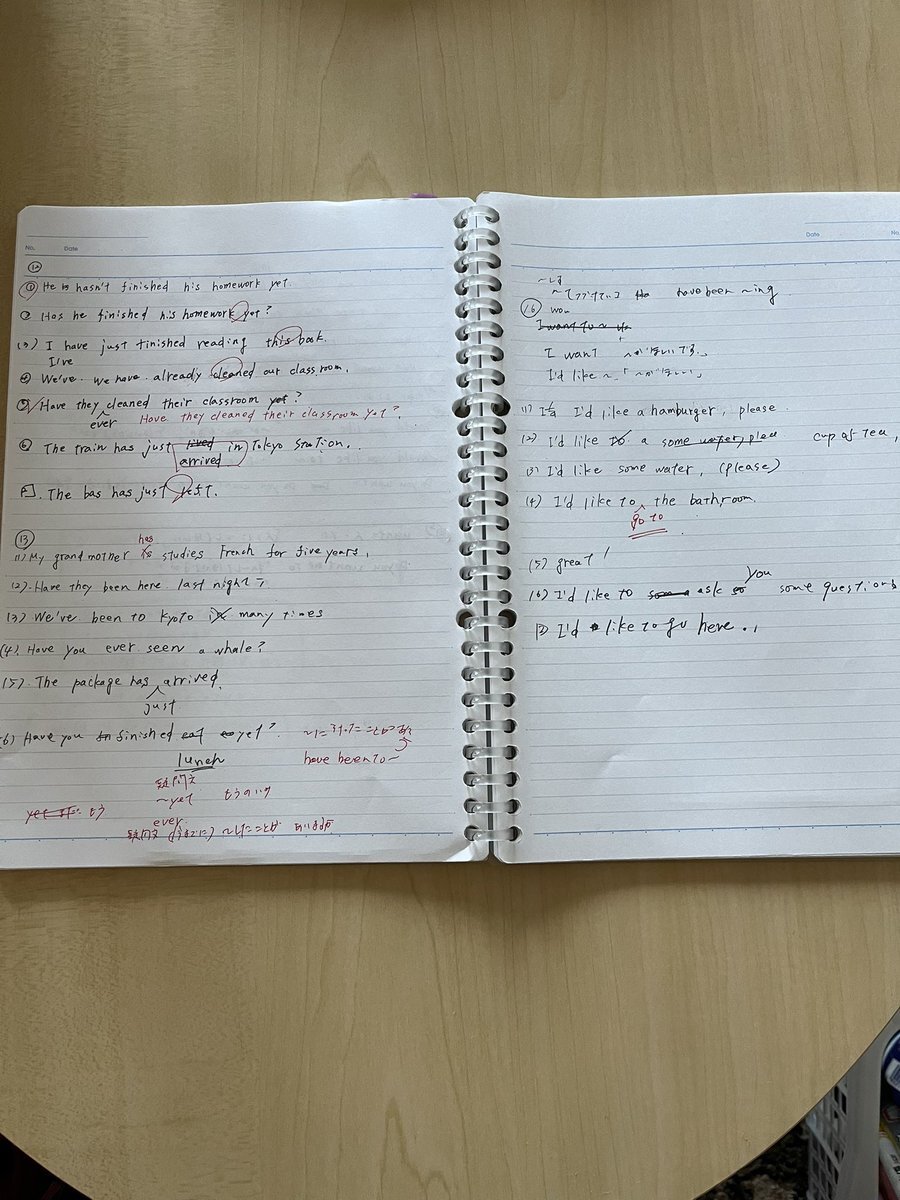 No. Date
12
① He hasn't finished his homework yet.
② Has he finished his homework yet?
(3) I have just finished reading this book.
I've
④ We've we have already cleaned our classroom.
⑤ Have they cleaned their classroom yet?
ever Have they cleaned their classroom yet?
⑥ The train has just in Tokyo Station.
arrived
The bas has just left.
13
has
(1) My grandmother studies French for five years.
(2) Have they been here last night?
(3) We've been to Kyoto many times
(4) Have you ever seen a whale?
(5) The package has arrived.
just
(6) Have you finished yet?
lunch
〜に行ったことがある
have been to〜
疑問文
〜yet もう
ever
疑問文 〜したことが ありますか
Date No.
have been 〜ing
16 wou
I want to 〜
I want 〜がほしいです。」
I'd like 〜「〜がほしい」
(1) I'd like a hamburger, please.
(2) I'd like to a some water, plea cup of tea,
(3) I'd like some water, (please)
(4) I'd like to the bathroom.
go to
(5) great!
you
(6) I'd like to ask some questions
I'd like to go here.